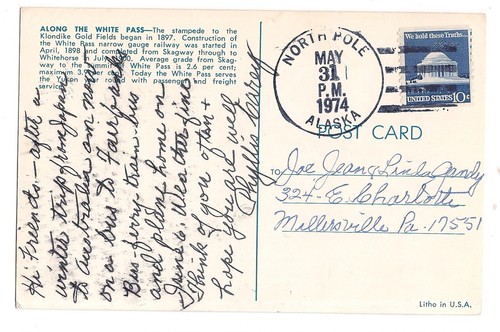 ALONG THE WHITE PASS—The stampede to the
Klondike Gold Fields began in 1897. Construction of
the White Pass narrow gauge railway was started in
April, 1898 and completed from Skagway through to
Whitehorse in July 1900. Average grade from Skag-
way to the summit of White Pass is 2.6 per cent;
maximum 3.9 per cent. Today the White Pass serves
the Yukon year round with passenger and freight
service.
Hi Friends - after a
winter trip from Japan
to Australia am now
on a bus to Fairbanks
Bus-ferry-train-bus
and plane home on
June 2. Weather fine
Think of you often &
hope you are well
Phyllis
NORTH POLE
MAY
31
P.M.
1974
ALASKA
We hold these Truths...
UNITED STATES 10c
POST CARD
TO Joe Jean & Linda Gandy
324 - E. Charlotte
Millersville Pa. 17551
Litho in U.S.A.